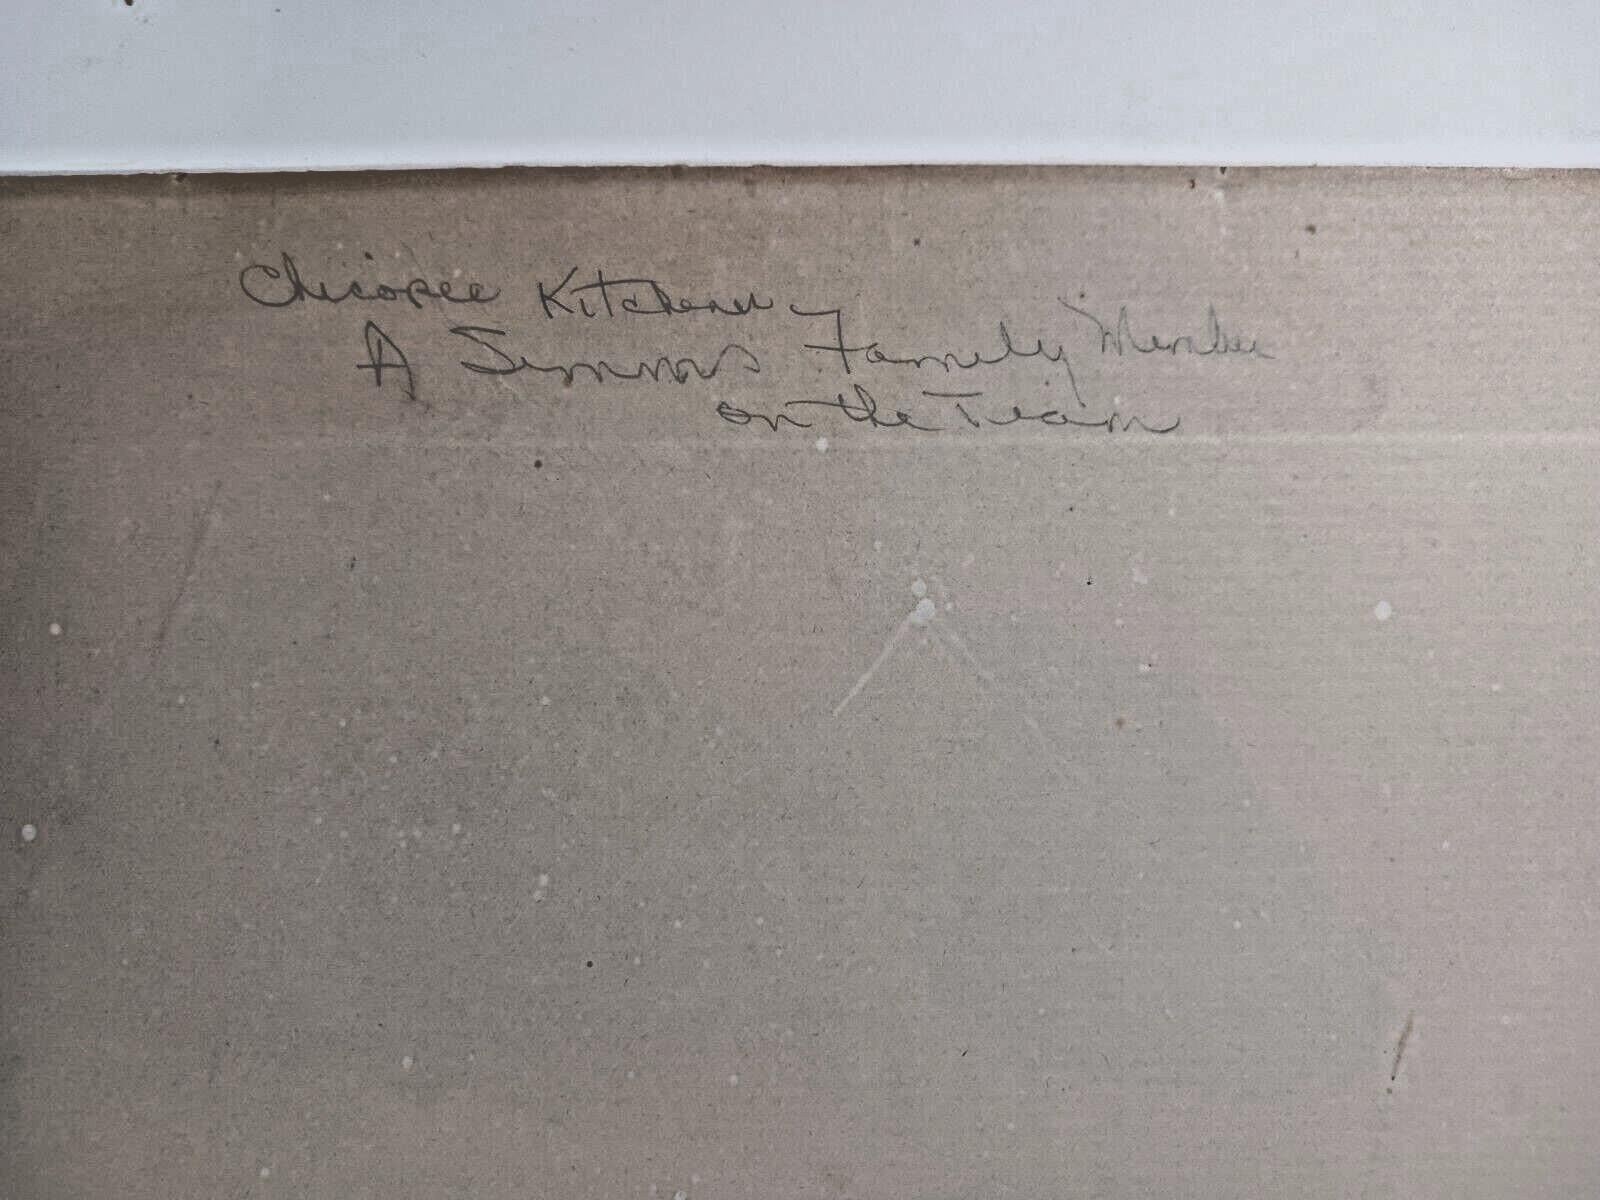 Chicopee Kitchener -
A Simms Family Member
on the Team